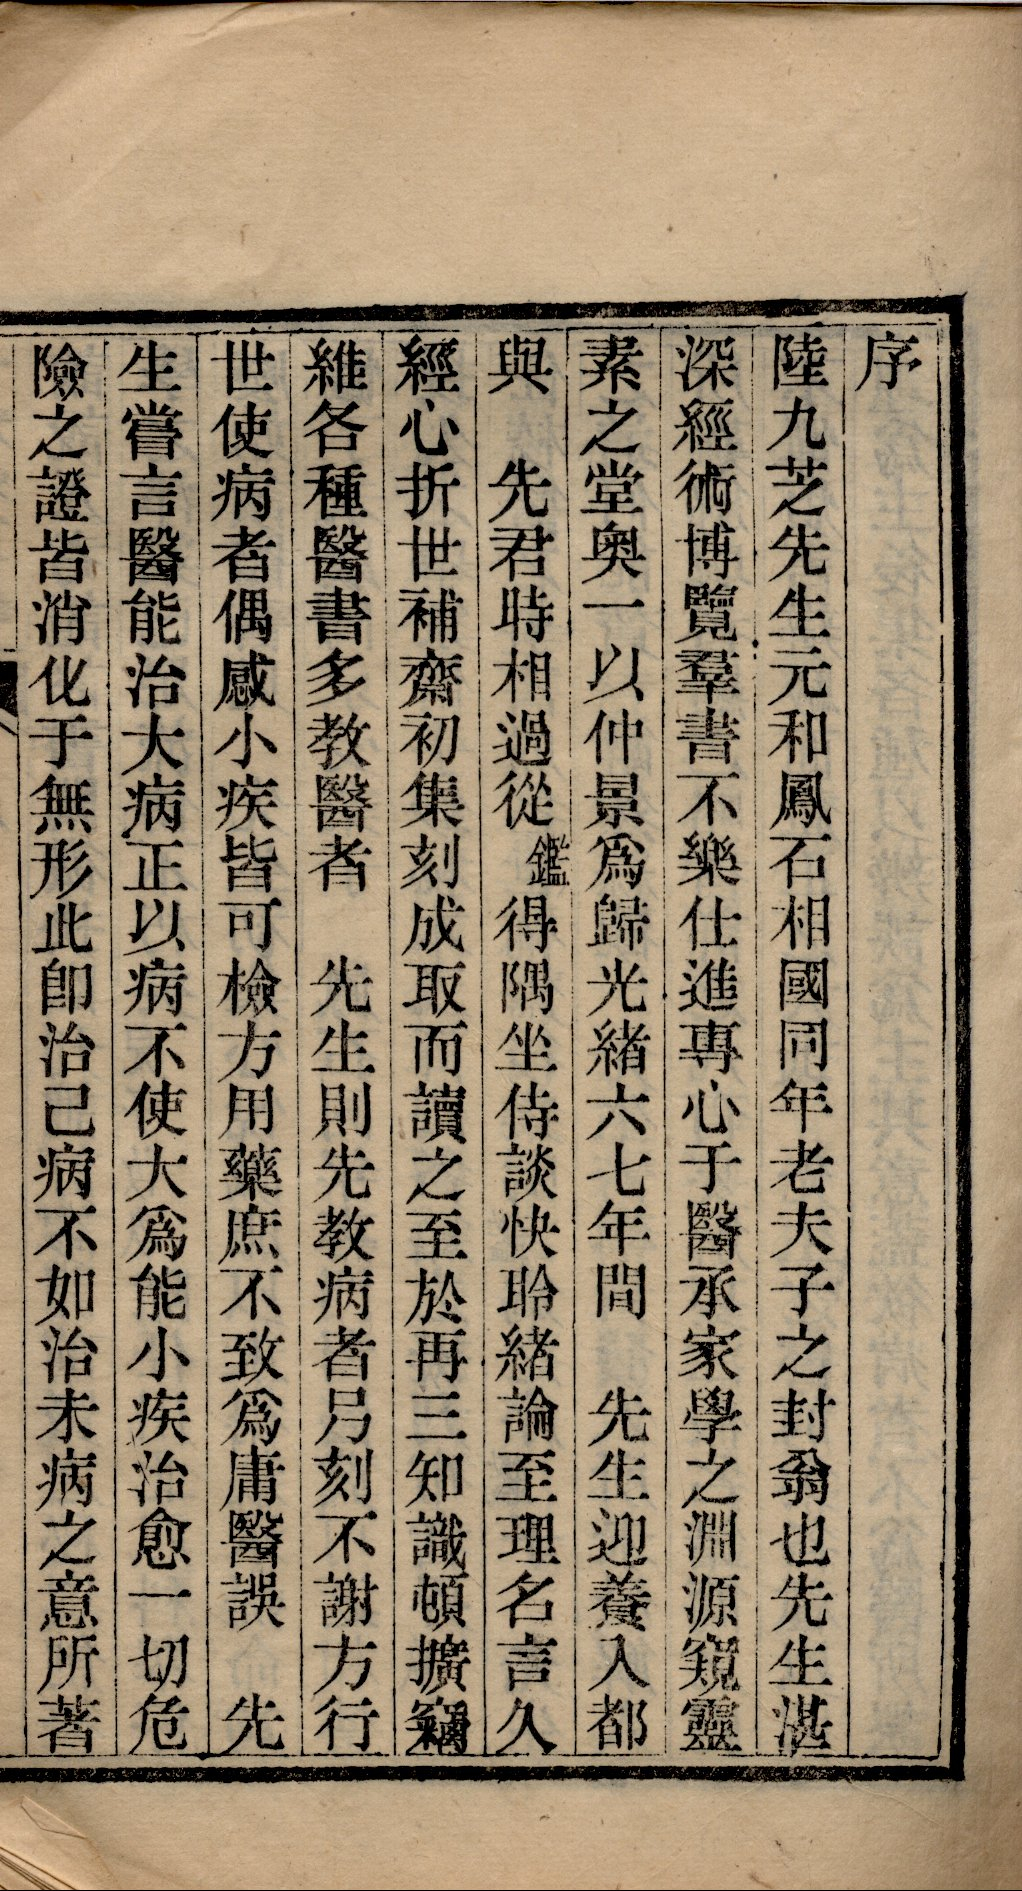 序
陸九芝先生元和鳳石相國同年老夫子之封翁也先生湛
深經術博覽羣書不樂仕進專心于醫承家學之淵源窺靈
素之堂奧一以仲景爲歸光緒六七年間　先生迎養入都
與　先君時相過從鑑得隅坐侍談快聆緒論至理名言久
經心折世補齋初集刻成取而讀之至於再三知識頓擴竊
維各種醫書多教醫者　先生則先教病者弖刻不謝方行
世使病者偶感小疾皆可檢方用藥庶不致爲庸醫誤　先
生嘗言醫能治大病正以病不使大爲能小疾治愈一切危
險之證皆消化于無形此卽治己病不如治未病之意所著